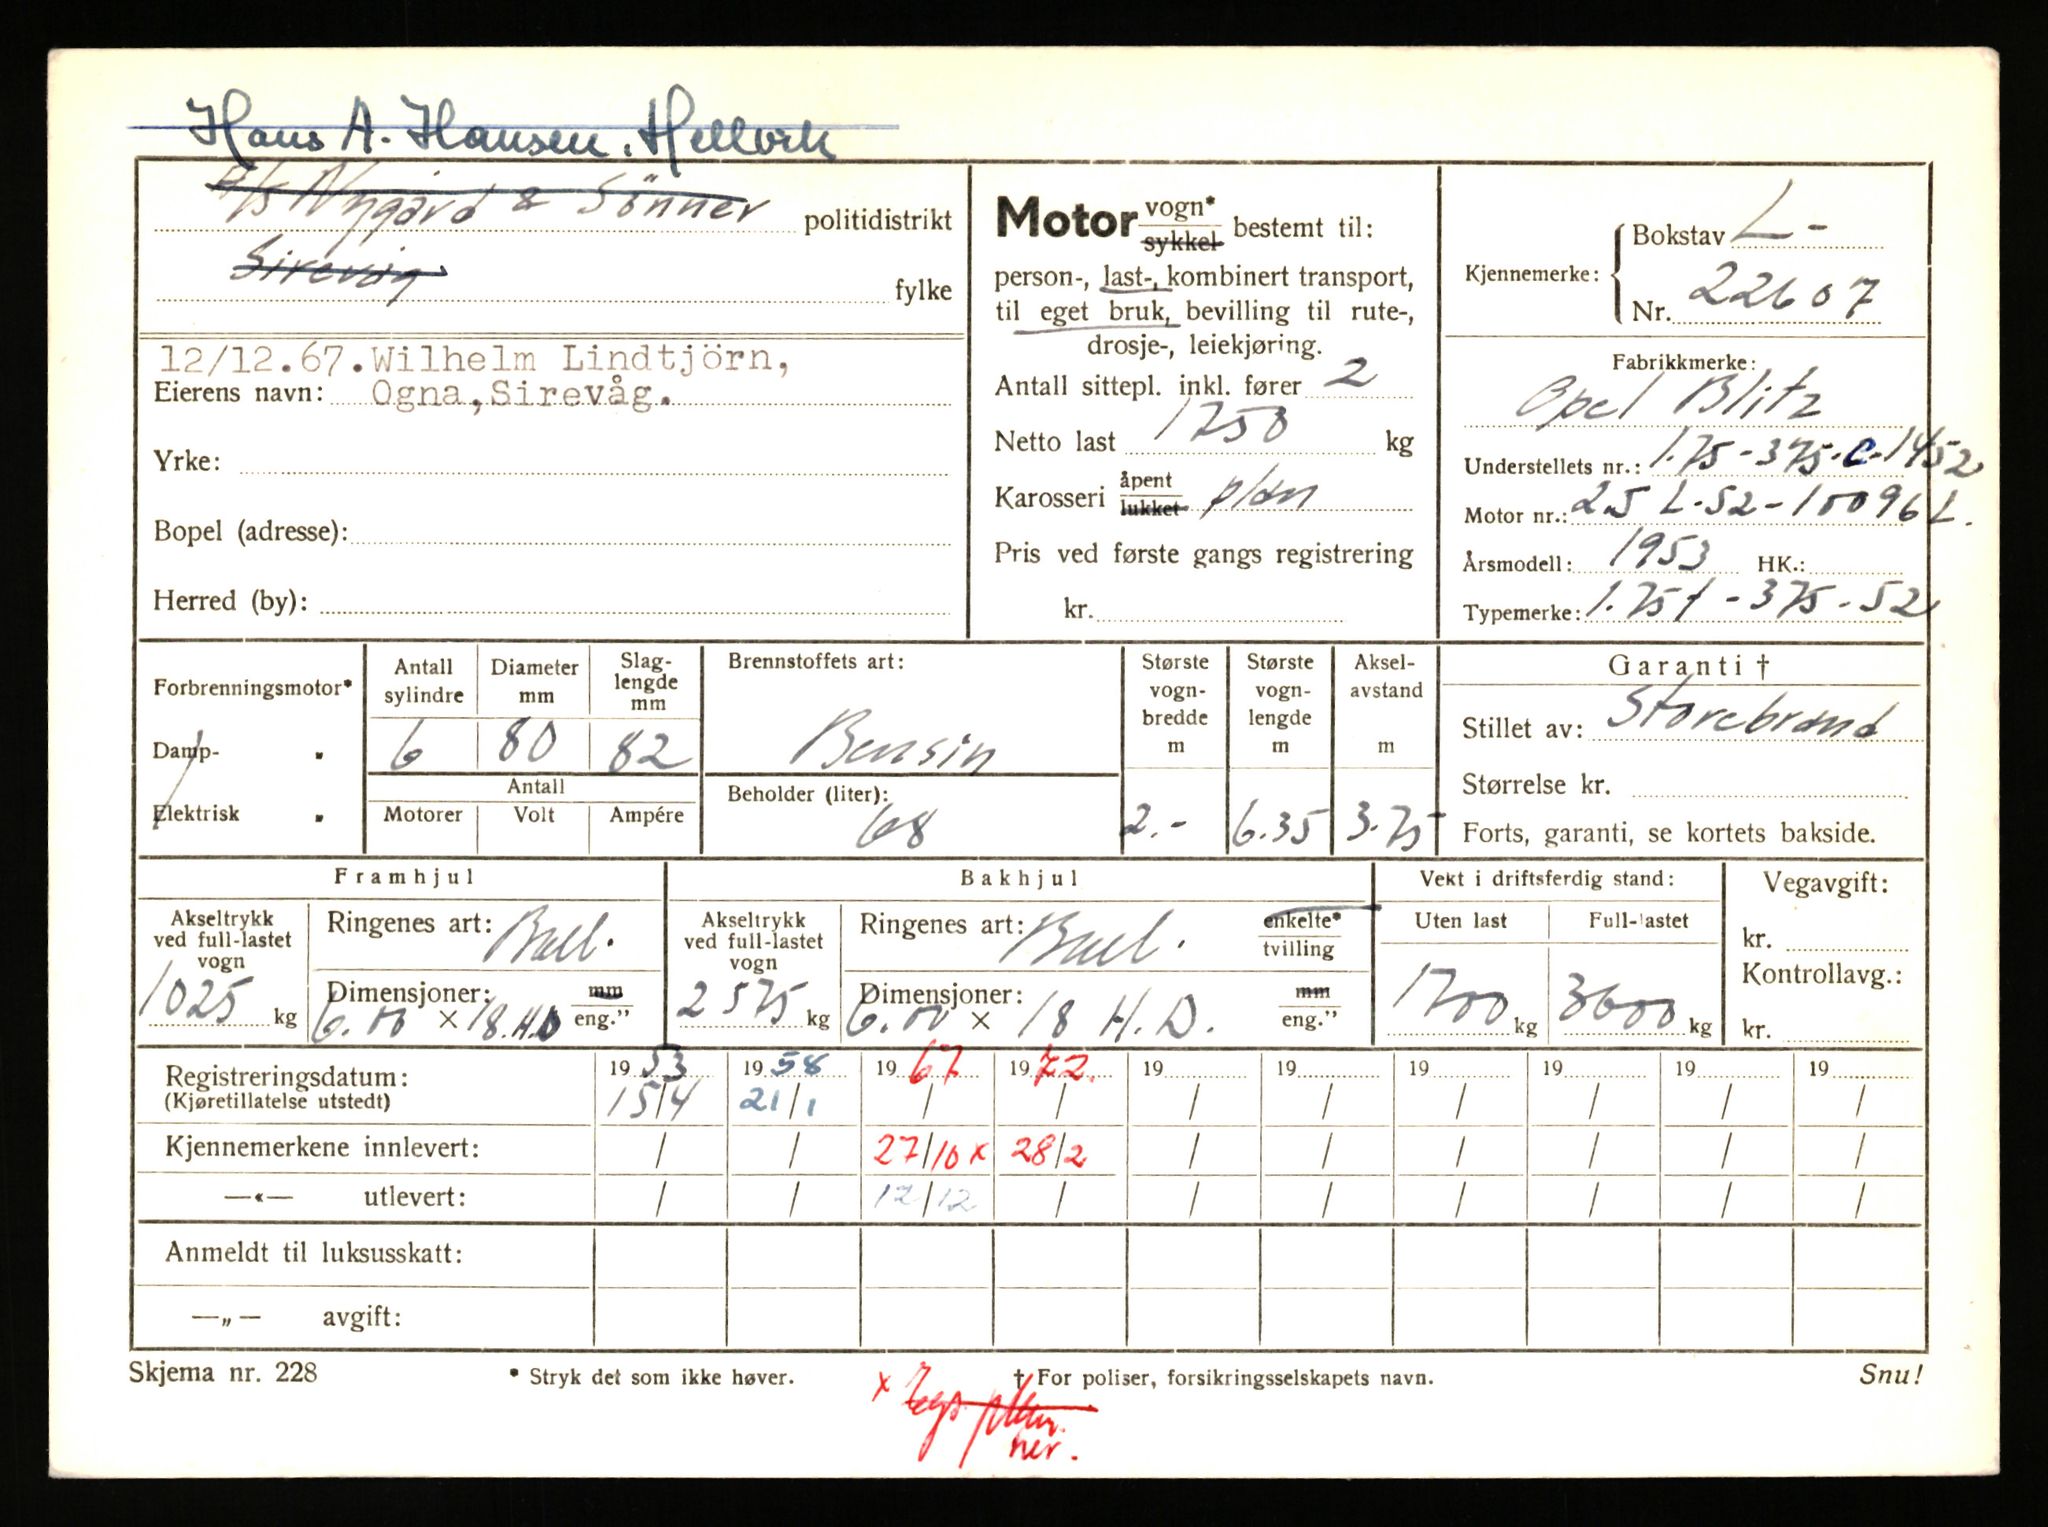 Hans A. Hansen. Hellvik
A/S Nygård & Sönner politidistrikt
Sirevåg fylke
12/12.67. Wilhelm Lindtjörn,
Eierens navn: Ogna, Sirevåg.
Yrke:
Bopel (adresse):
Herred (by):
Motor vogn* sykkel bestemt til:
person-, last-, kombinert transport,
til eget bruk, bevilling til rute-,
drosje-, leiekjøring.
Antall sittepl. inkl. fører 2
Netto last 1750 kg
Karosseri åpent lukket plan
Pris ved første gangs registrering
kr.
Kjennemerke: Bokstav L-
Nr. 22607
Fabrikkmerke:
Opel Blitz
Understellets nr.: 1.75-375-C-1452
Motor nr.: 2.5 L-52-10096 L.
Årsmodell: 1953 HK.:
Typemerke: 1.75 t-375-52
Forbrenningsmotor*
Damp- "
Elektrisk "
Antall sylindre
6
Diameter mm
80
Slag-lengde mm
82
Antall
Motorer Volt Ampére
Brennstoffets art:
Bensin
Beholder (liter):
68
Største vogn-bredde m
2.-
Største vogn-lengde m
6.35
Aksel-avstand m
3.75
Garanti †
Stillet av: Storebrand
Størrelse kr.
Forts, garanti, se kortets bakside.
Framhjul
Akseltrykk ved full-lastet vogn
1025 kg
Ringenes art: Ball.
Dimensjoner: mm
6.00 × 18 H.D eng."
Bakhjul
Akseltrykk ved full-lastet vogn
2575 kg
Ringenes art: Ball. enkelte* tvilling
Dimensjoner: mm
6.00 × 18 H.D. eng."
Vekt i driftsferdig stand:
Uten last Full-lastet
1700 kg 3600 kg
Vegavgift:
kr.
Kontrollavg.:
kr.
Registreringsdatum: 1953 1958 1967 1972. 19 19 19 19 19 19
(Kjøretillatelse utstedt) 15/4 21/1 / / / / / / / /
Kjennemerkene innlevert: / / 27/10 x 28/2 / / / / / /
—«— utlevert: / / 12/12 / / / / / / /
Anmeldt til luksusskatt:
—„— avgift:
Skjema nr. 228 * Stryk det som ikke høver. † For poliser, forsikringsselskapets navn. Snu!
x
ner.